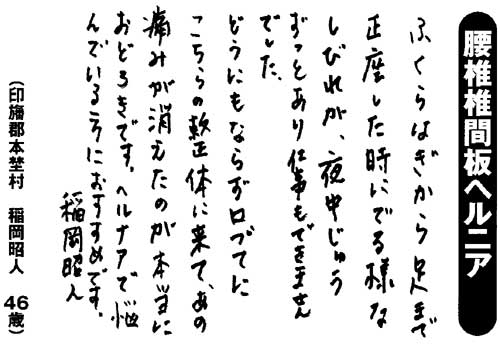 腰椎椎間板ヘルニア
ふくらはぎから足まで
正座した時にでる様な
しびれが、夜中じゅう
ずっとあり仕事もできません
でした。
どうにもならず口づてに
こちらの整体に来て、あの
痛みが消えたのが本当に
おどろきです。ヘルナアで悩
んでいる方におすすめです。
稲岡昭人
(印旛郡本埜村 稲岡昭人 46歳)